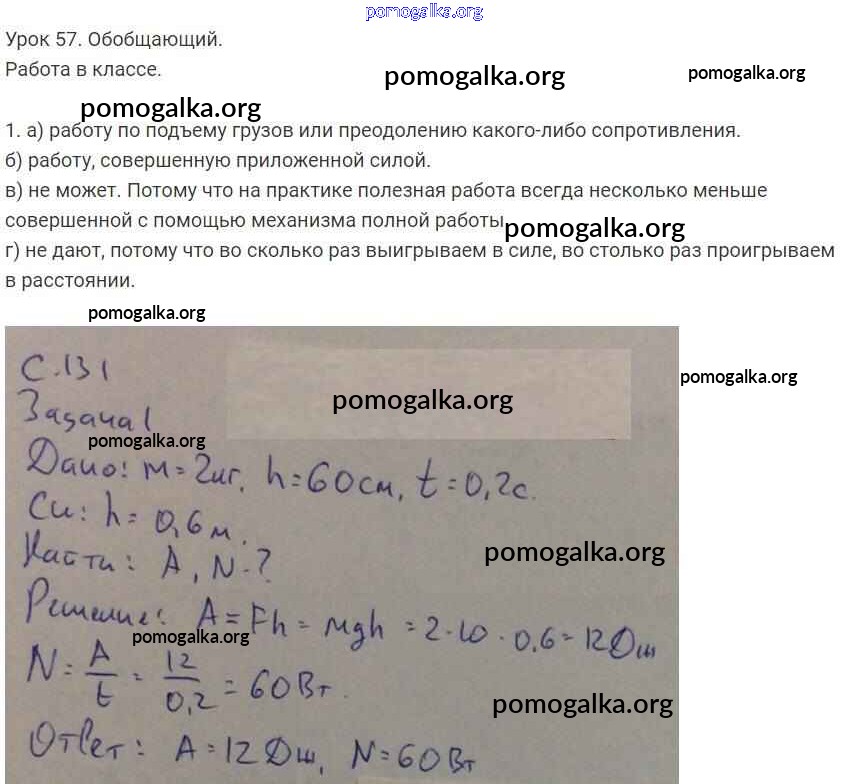 pomogalka.org
Урок 57. Обобщающий.
Работа в классе.
pomogalka.org
pomogalka.org
pomogalka.org
1. а) работу по подъему грузов или преодолению какого-либо сопротивления.
б) работу, совершенную приложенной силой.
в) не может. Потому что на практике полезная работа всегда несколько меньше
совершенной с помощью механизма полной работы
pomogalka.org
г) не дают, потому что во сколько раз выигрываем в силе, во столько раз проигрываем
в расстоянии.
pomogalka.org
С.131
pomogalka.org
pomogalka.org
Задача 1
pomogalka.org
Дано: m = 2кг, h = 60 см, t = 0,2с.
Си: h = 0,6 м.
pomogalka.org
Найти: A, N - ?
Решение: A = Fh = mgh = 2 · 10 · 0,6 = 12Дж
pomogalka.org
N = A/t = 12/0,2 = 60 Вт.
pomogalka.org
Ответ: A = 12 Дж, N = 60 Вт